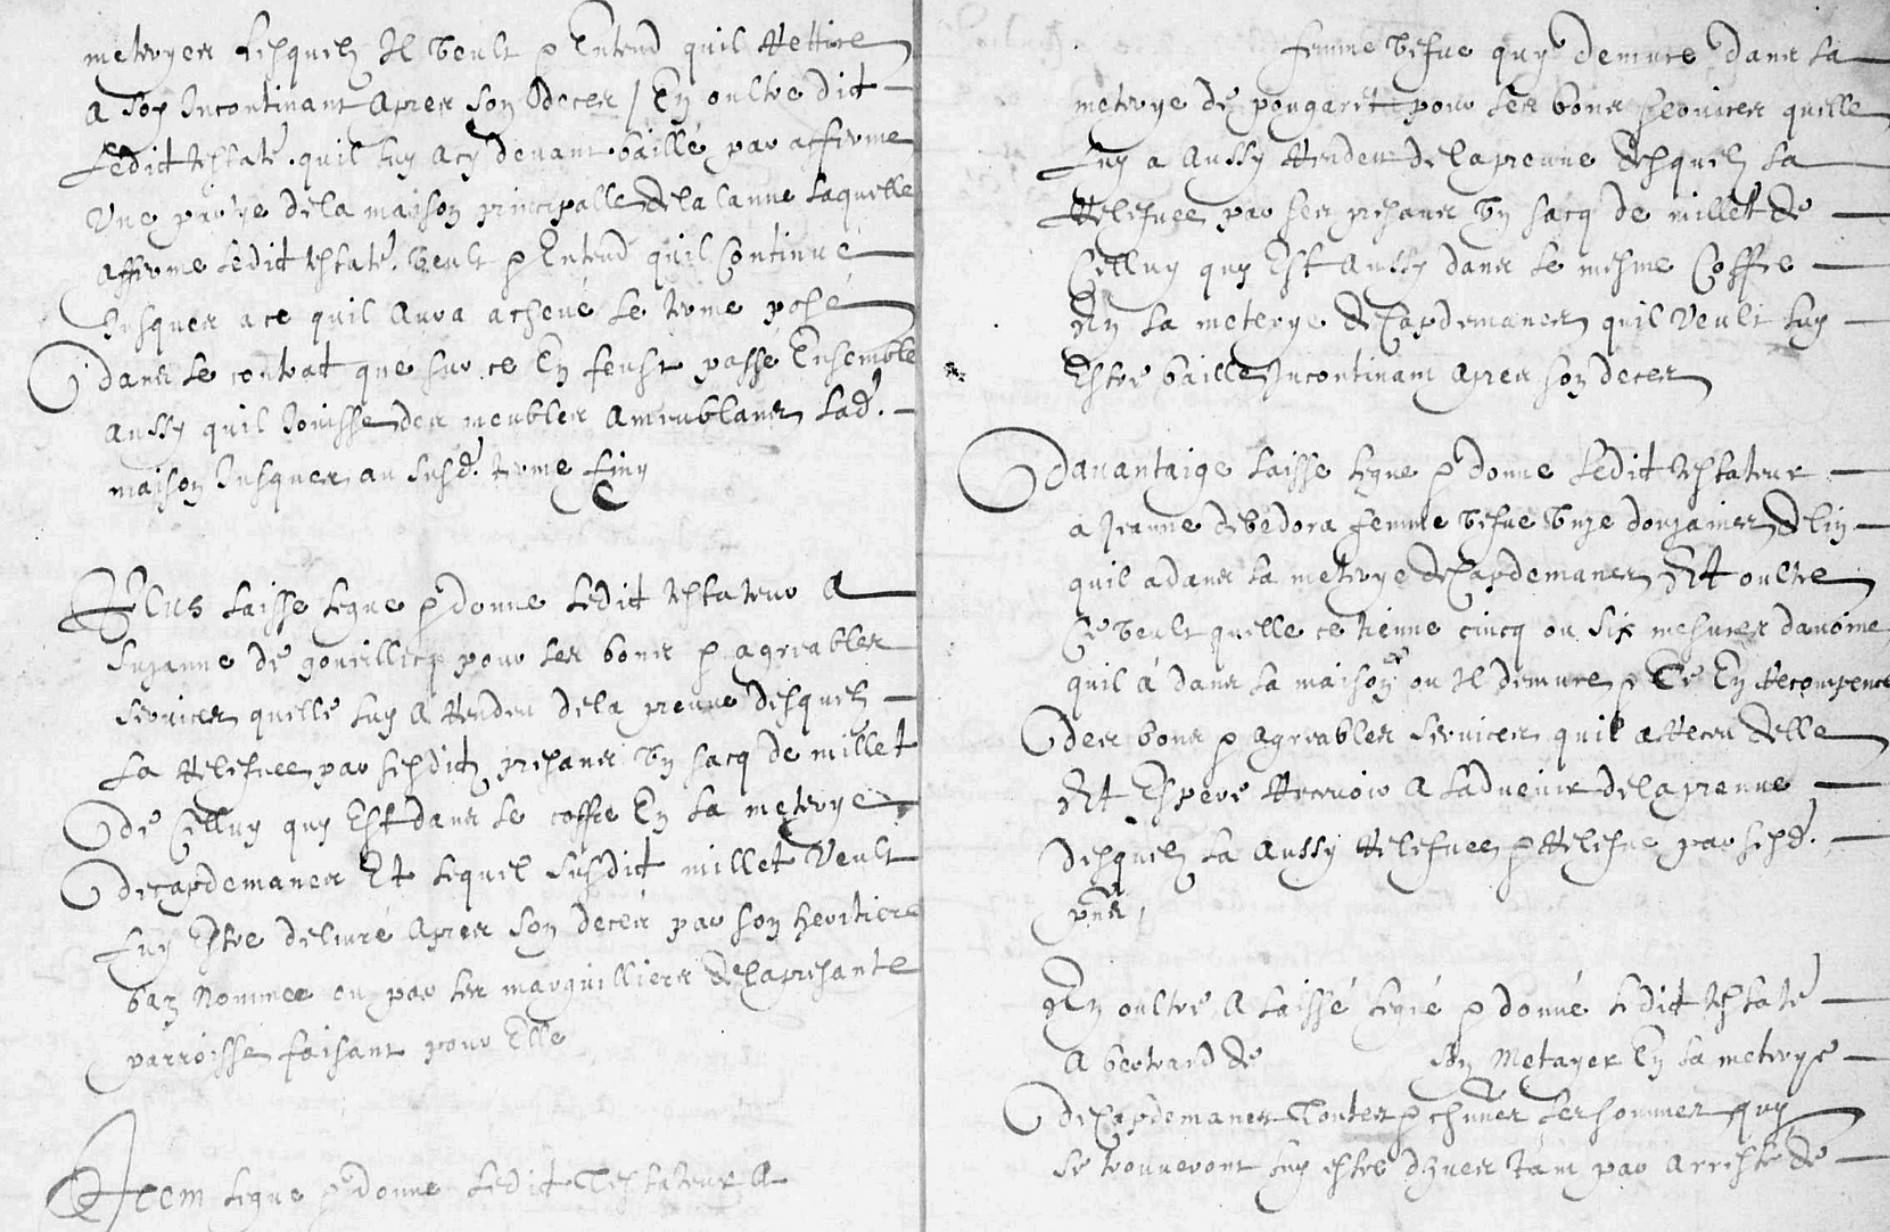 meteryes lesquelz Il veult et Entend quil Rettire
a soy Incontinant apres son deces / En oultre dict
Ledict testate. quil luy a cy devant baillé par afferme
Une partye de la maison principalle de la canne laquelle
afferme ledict testate. veult et Entend quil Continue
Jusques a ce quil aura achevé le terme posé
dans le contrat que sur ce En feust passé Ensemble
aussy quil Jouisse des meubles ameublans lad.
maison Jusques au susd. terme finy
Plus laisse legue et donne ledict testateur A
Suzanne de pour les bons et agreables
services quelle luy a Rendeu de la preuve desquelz
la Relefvee par sesdictz presans un sacq de millet
de Celluy quy Est dans le coffre En la meterye
de capdemanes Et lequel susdict millet veult
luy Estre delivré apres son deces par son heritiere
bas nommee ou par les marguilliers de la presante
parroisse faisant pour Elle
Item legue et donne ledict Testateur A
femme vefue quy demure dans la
meterye de pougaret pour les bons services quelle
luy a aussy Rendeu de la preuve desquelz la
Relefvee par ses presans un sacq de millet de
Celluy quy Est aussy dans le mesme Coffre
En la meterye de Capdemanes quil veult luy
Estre baille Incontinant apres son deces
Davantaige laisse legue et donne ledict testateur
a Jeanne femme vefue unze douzaines de lin
quil a dans la meterye de Capdemanes Et oultre
Ce veult quelle ce tienne cincq ou six mesures davoine
quil a dans la maison ou Il demure et Ce En Recompence
des bons et agreables services quil a Receu delle
Et Espere Recevoir a ladvenir de la preuve
desquelz la aussy Relefvee et Relefve par sesd.
pns
En oultre a laissé legué et donné ledict testate
a bertrand de son Metayer En la meterye
de Capdemanes Toutes et chunes les sommes quy
se trouveront luy estre dhues tant par arresté de